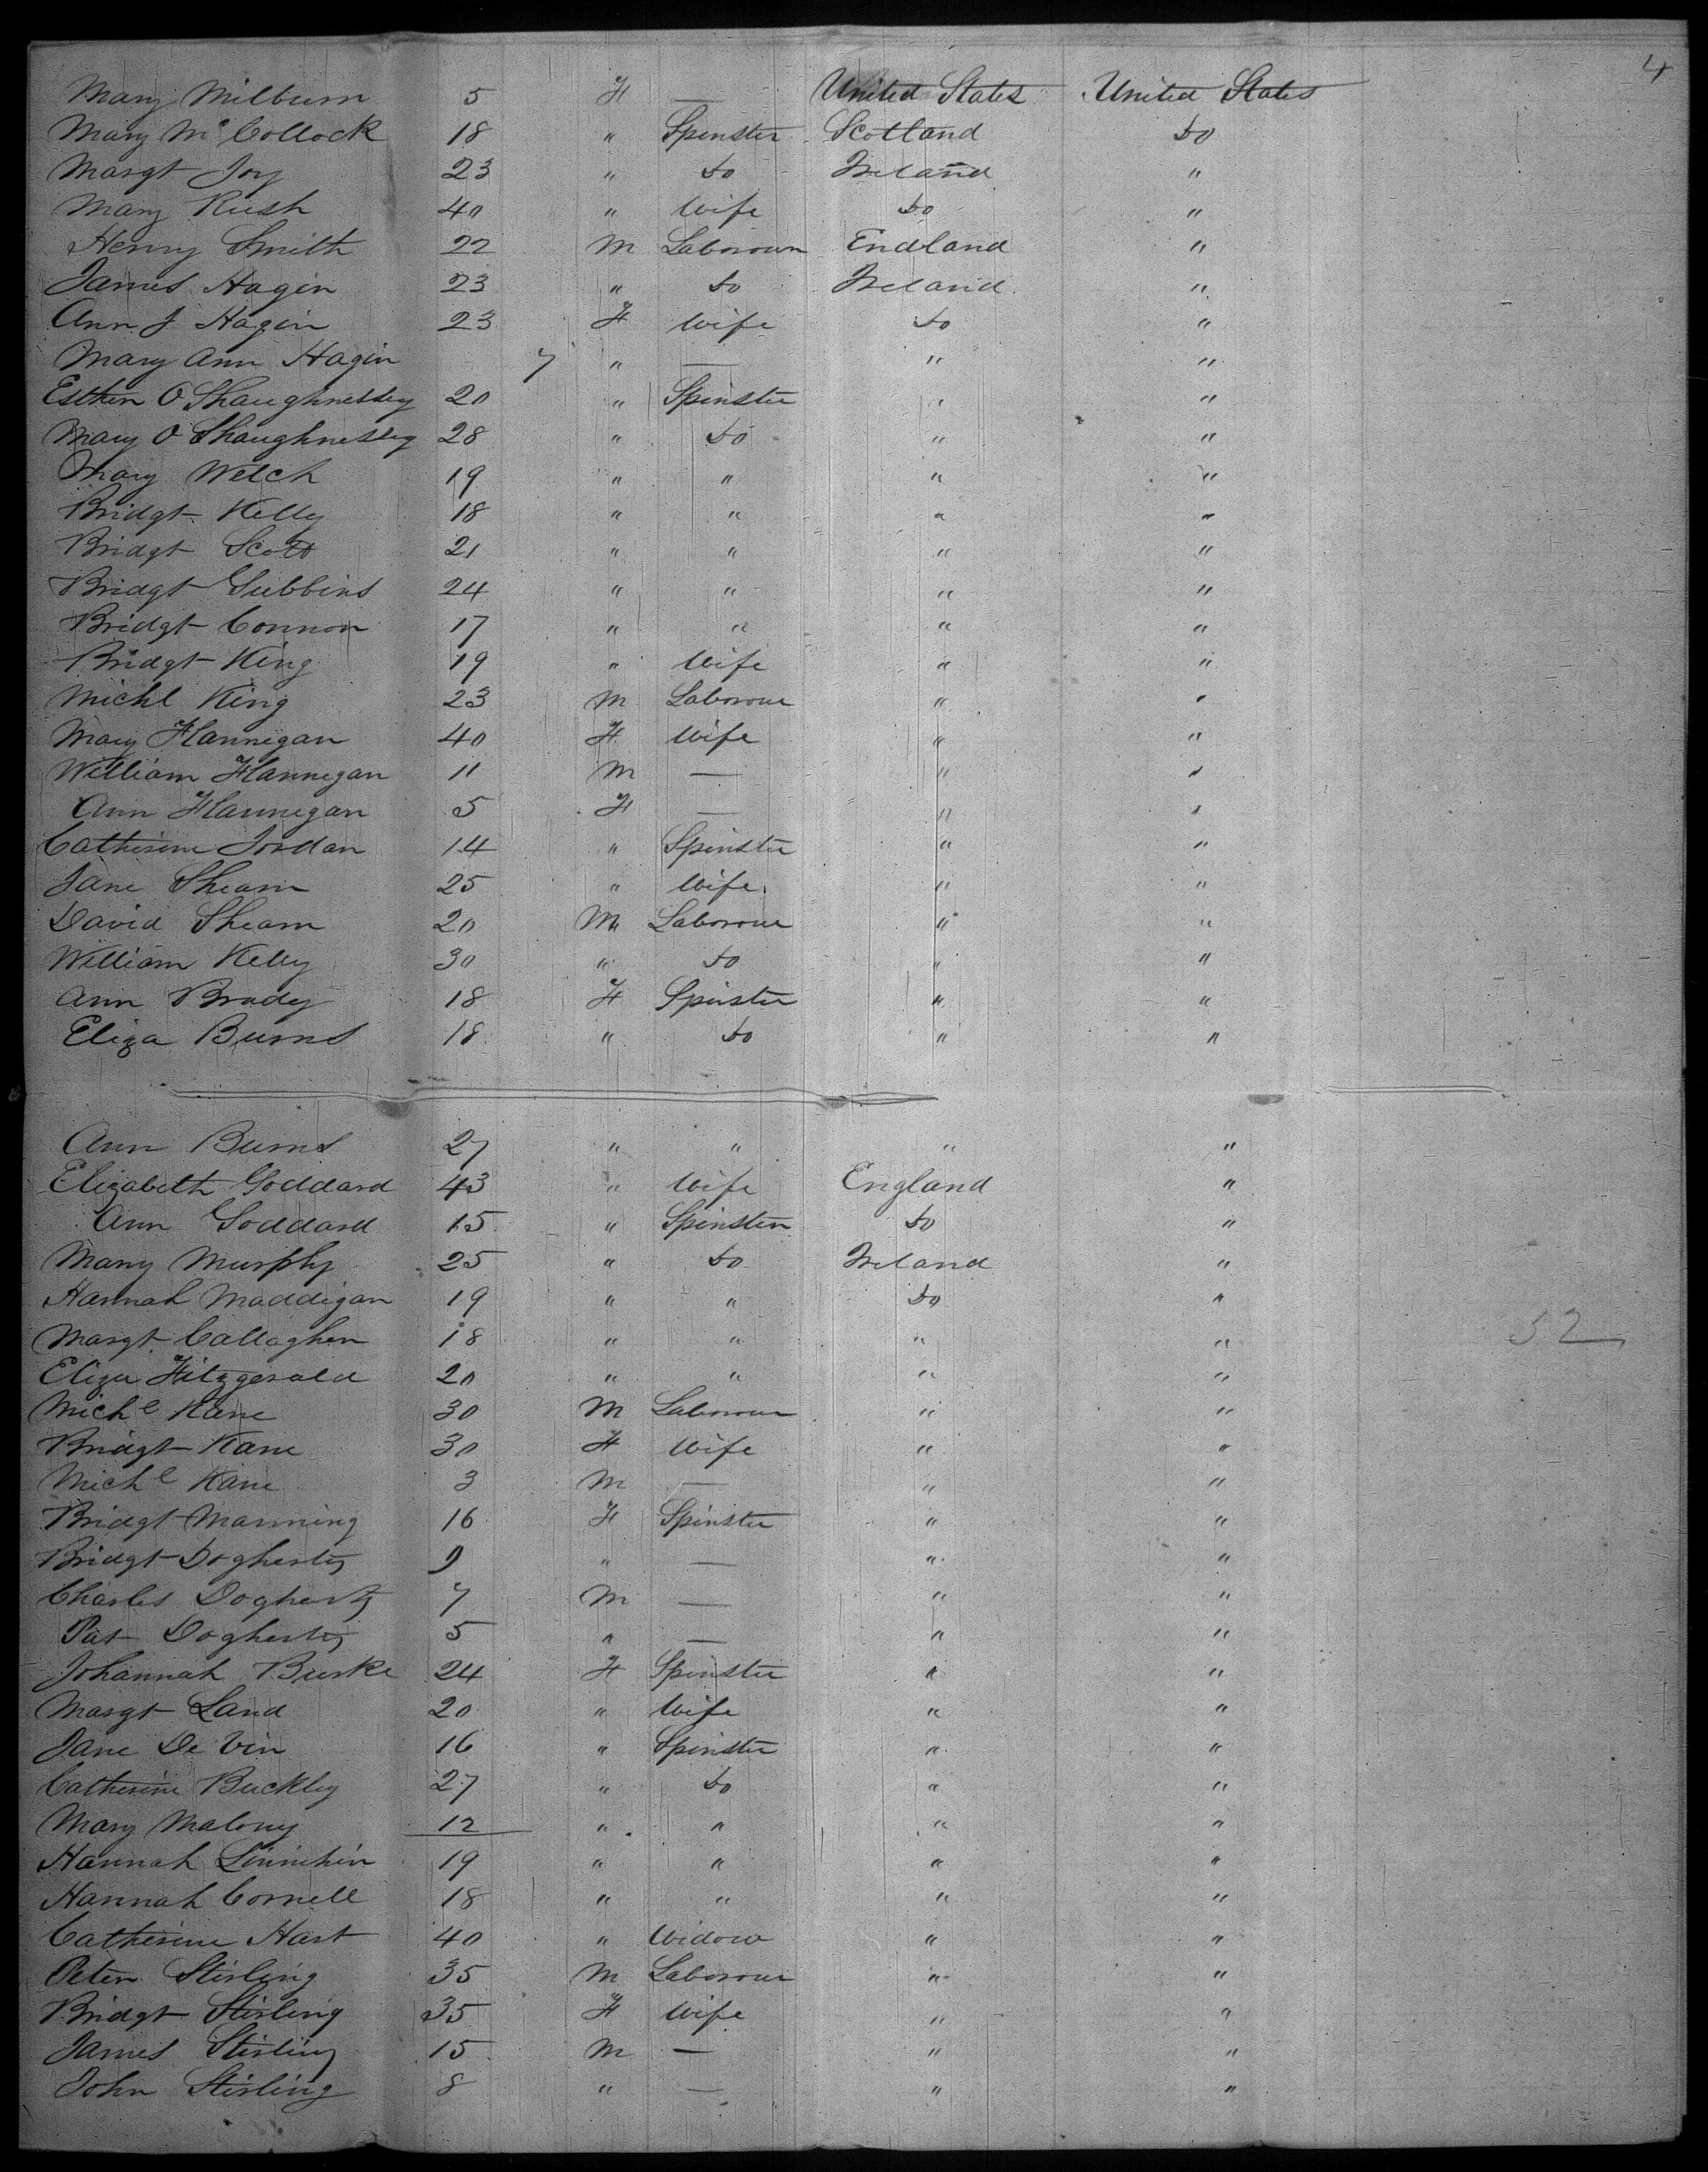 4
Mary Milburn 5 F — United States United States
Mary McCollock 18 " Spinster Scotland Do
Margt Joy 23 " Do Ireland "
Mary Rush 40 " Wife Do "
Henry Smith 22 M Laborour Endland "
James Hagin 23 " Do Ireland "
Ann J Hagin 23 F Wife Do "
Mary Ann Hagin 7 " — " "
Esther O Shaughnessey 20 " Spinster " "
Mary O Shaughnessey 28 " Do " "
Mary Welch 19 " " " "
Bridgt Kelly 18 " " " "
Bridgt Scott 21 " " " "
Bridgt Gubbins 24 " " " "
Bridgt Connon 17 " " " "
Bridgt King 19 " Wife " "
Michl King 23 M Laborour " "
Mary Flannegan 40 F Wife " "
William Flannegan 11 M — " "
Ann Flannegan 5 F — " "
Catherine Jordan 14 " Spinster " "
Jane Shearn 25 " Wife " "
David Shearn 20 M Laborour " "
William Kelly 30 " Do " "
Ann Brady 18 F Spinster " "
Eliza Burns 18 " Do " "
Ann Burns 27 " " " "
Elizabeth Goddard 43 " Wife England "
Ann Goddard 15 " Spinster Do "
Mary Murphy 25 " Do Ireland "
Hannah Maddigan 19 " " Do "
Margt Callaghen 18 " " " "
52
Eliza Fitzgerald 20 " " " "
Michl Kane 30 M Laborour " "
Bridgt Kane 30 F Wife " "
Michl Kane 3 M — " "
Bridgt Manning 16 F Spinster " "
Bridgt Dogherty 9 " — " "
Charles Dogherty 7 M — " "
Pat Dogherty 5 " — " "
Johannah Burke 24 F Spinster " "
Margt Land 20 " Wife " "
Jane De Vin 16 " Spinster " "
Catherine Buckley 27 " Do " "
Mary Malony 12 " " " "
Hannah Linnehin 19 " " " "
Hannah Cornell 18 " " " "
Catherine Hart 40 " Widow " "
Peter Stirling 35 M Laborour " "
Bridgt Stirling 35 F Wife " "
James Stirling 15 M — " "
John Stirling 8 " — " "